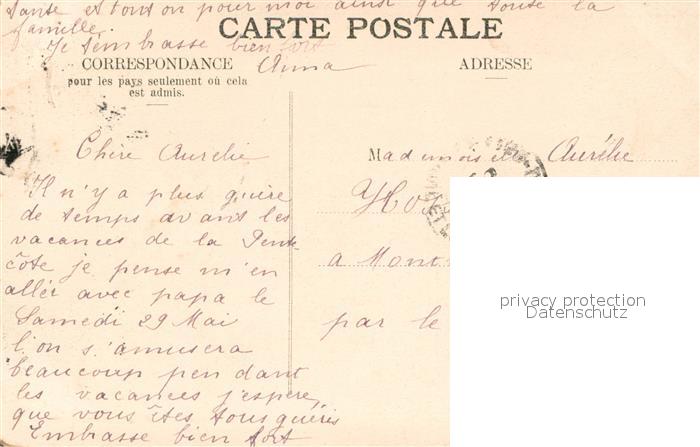 santé et tonton pour moi ainsi que toute la
famille.
Je t'embrasse bien fort
Anna
CARTE POSTALE
CORRESPONDANCE
pour les pays seulement où cela
est admis.
ADRESSE
Chère Aurelie
Il n'y a plus guère
de temps avant les
vacances de la Pente-
côte je pense m'en
aller avec papa le
Samedi 29 Mai
l'on s'amusera
beaucoup pendant
les vacances j'espère,
que vous êtes tous guéris
Embrasse bien fort
Mademoiselle Aurélie
à Mont
par le
privacy protection
Datenschutz